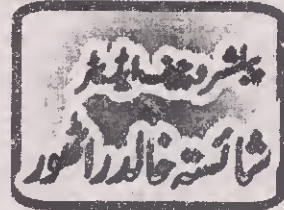 پبلشر و چیف ایڈیٹر
شائستہ خالد راٹھور